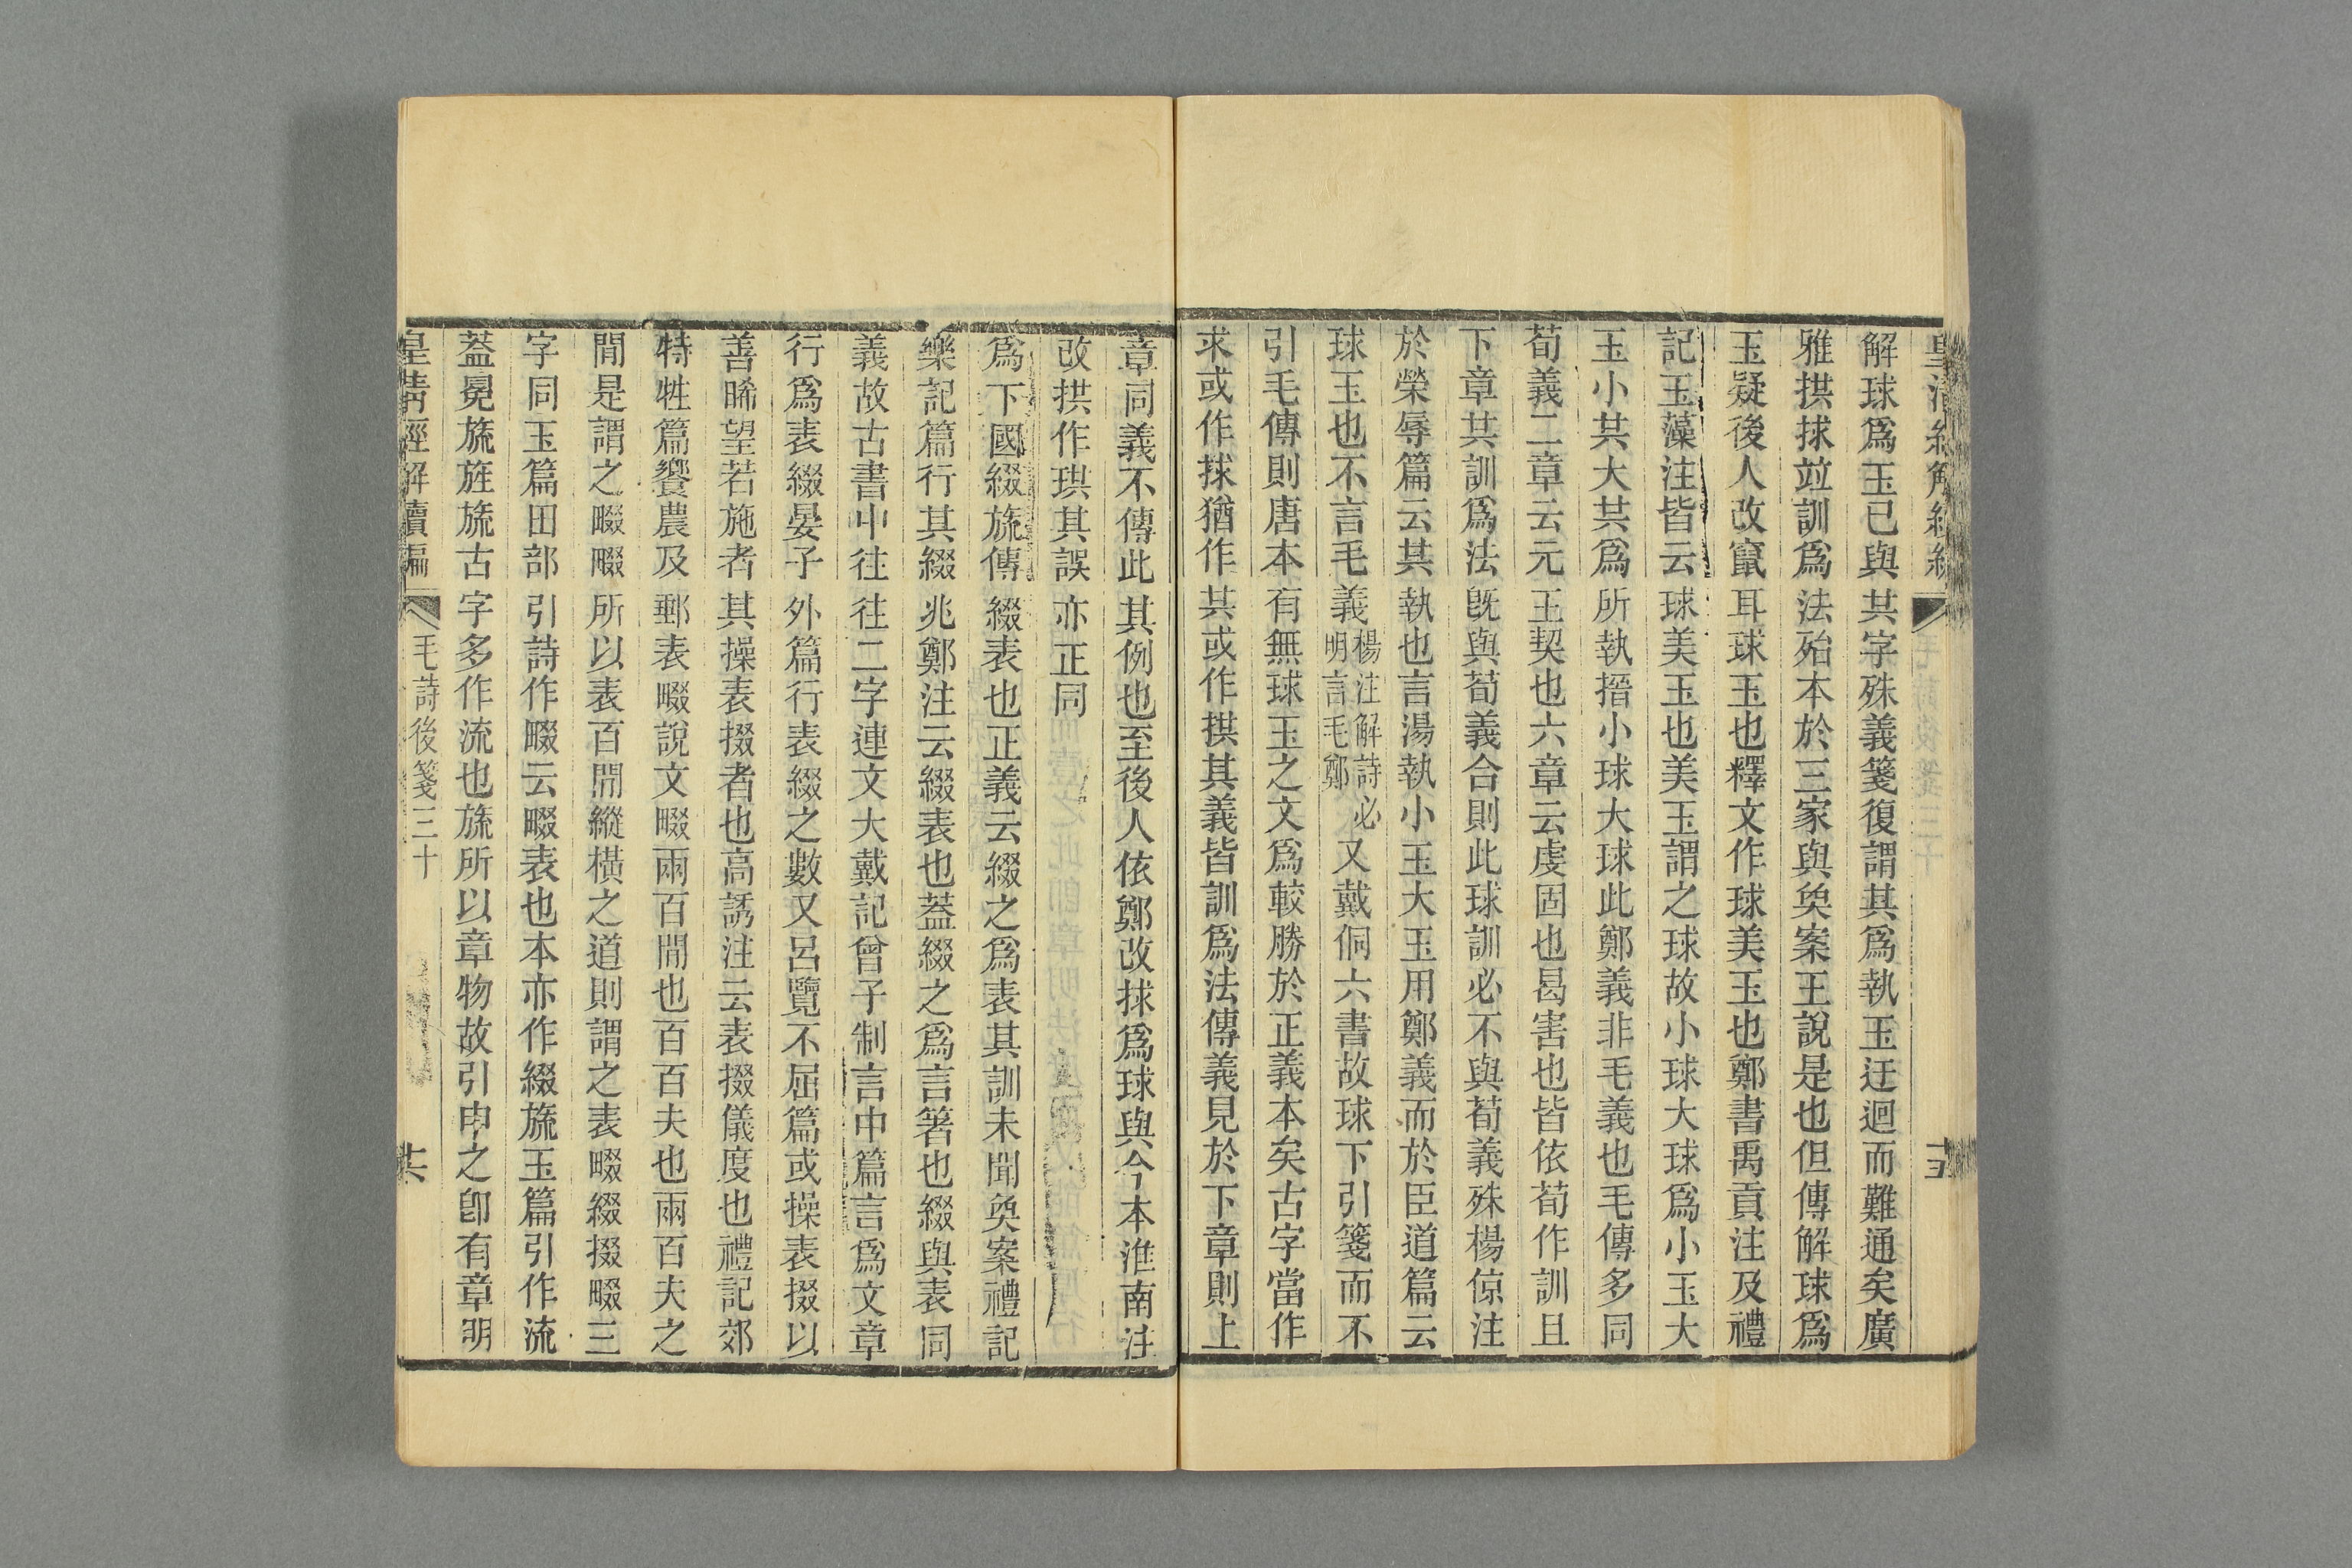 解球爲玉已與共字殊義箋復謂共爲執玉迂迴而難通矣廣
雅拱捄竝訓爲法殆本於三家與奐案王說是也但傳解球爲
玉疑後人改竄耳球玉也釋文作球美玉也鄭書禹貢注及禮
記玉藻注皆云球美玉也美玉謂之球故小球大球爲小玉大
玉小共大共爲所執搢小球大球此鄭義非毛義也毛傳多同
荀義二章云元王契也六章云虔固也曷害也皆依荀作訓且
下章共訓爲法旣與荀義合則此球訓必不與荀義殊楊倞注
於榮辱篇云共執也言湯執小玉大玉用鄭義而於臣道篇云
球玉也不言毛義楊注解詩必明言毛鄭又戴侗六書故球下引箋而不
引毛傳則唐本有無球玉之文爲較勝於正義本矣古字當作
求或作捄猶作共或作拱其義皆訓爲法傳義見於下章則上
章同義不傳此其例也至後人依鄭改捄爲球與今本淮南注
改拱作珙其誤亦正同
爲下國綴旒傳綴表也正義云綴之爲表其訓未聞奐案禮記
樂記篇行其綴兆鄭注云綴表也葢綴之爲言箸也綴與表同
義故古書中往往二字連文大戴記曾子制言中篇言爲文章
行爲表綴晏子外篇行表綴之數又呂覽不屈篇或操表掇以
善睎望若施者其操表掇者也高誘注云表掇儀度也禮記郊
特牲篇饗農及郵表畷說文畷兩百閒也百百夫也兩百夫之
閒是謂之畷畷所以表百閒縱橫之道則謂之表畷綴掇畷三
字同玉篇田部引詩作畷云畷表也本亦作綴旒玉篇引作流
葢冕旒旌旒古字多作流也旒所以章物故引申之卽有章明
皇清經解續編
毛詩後箋三十
共